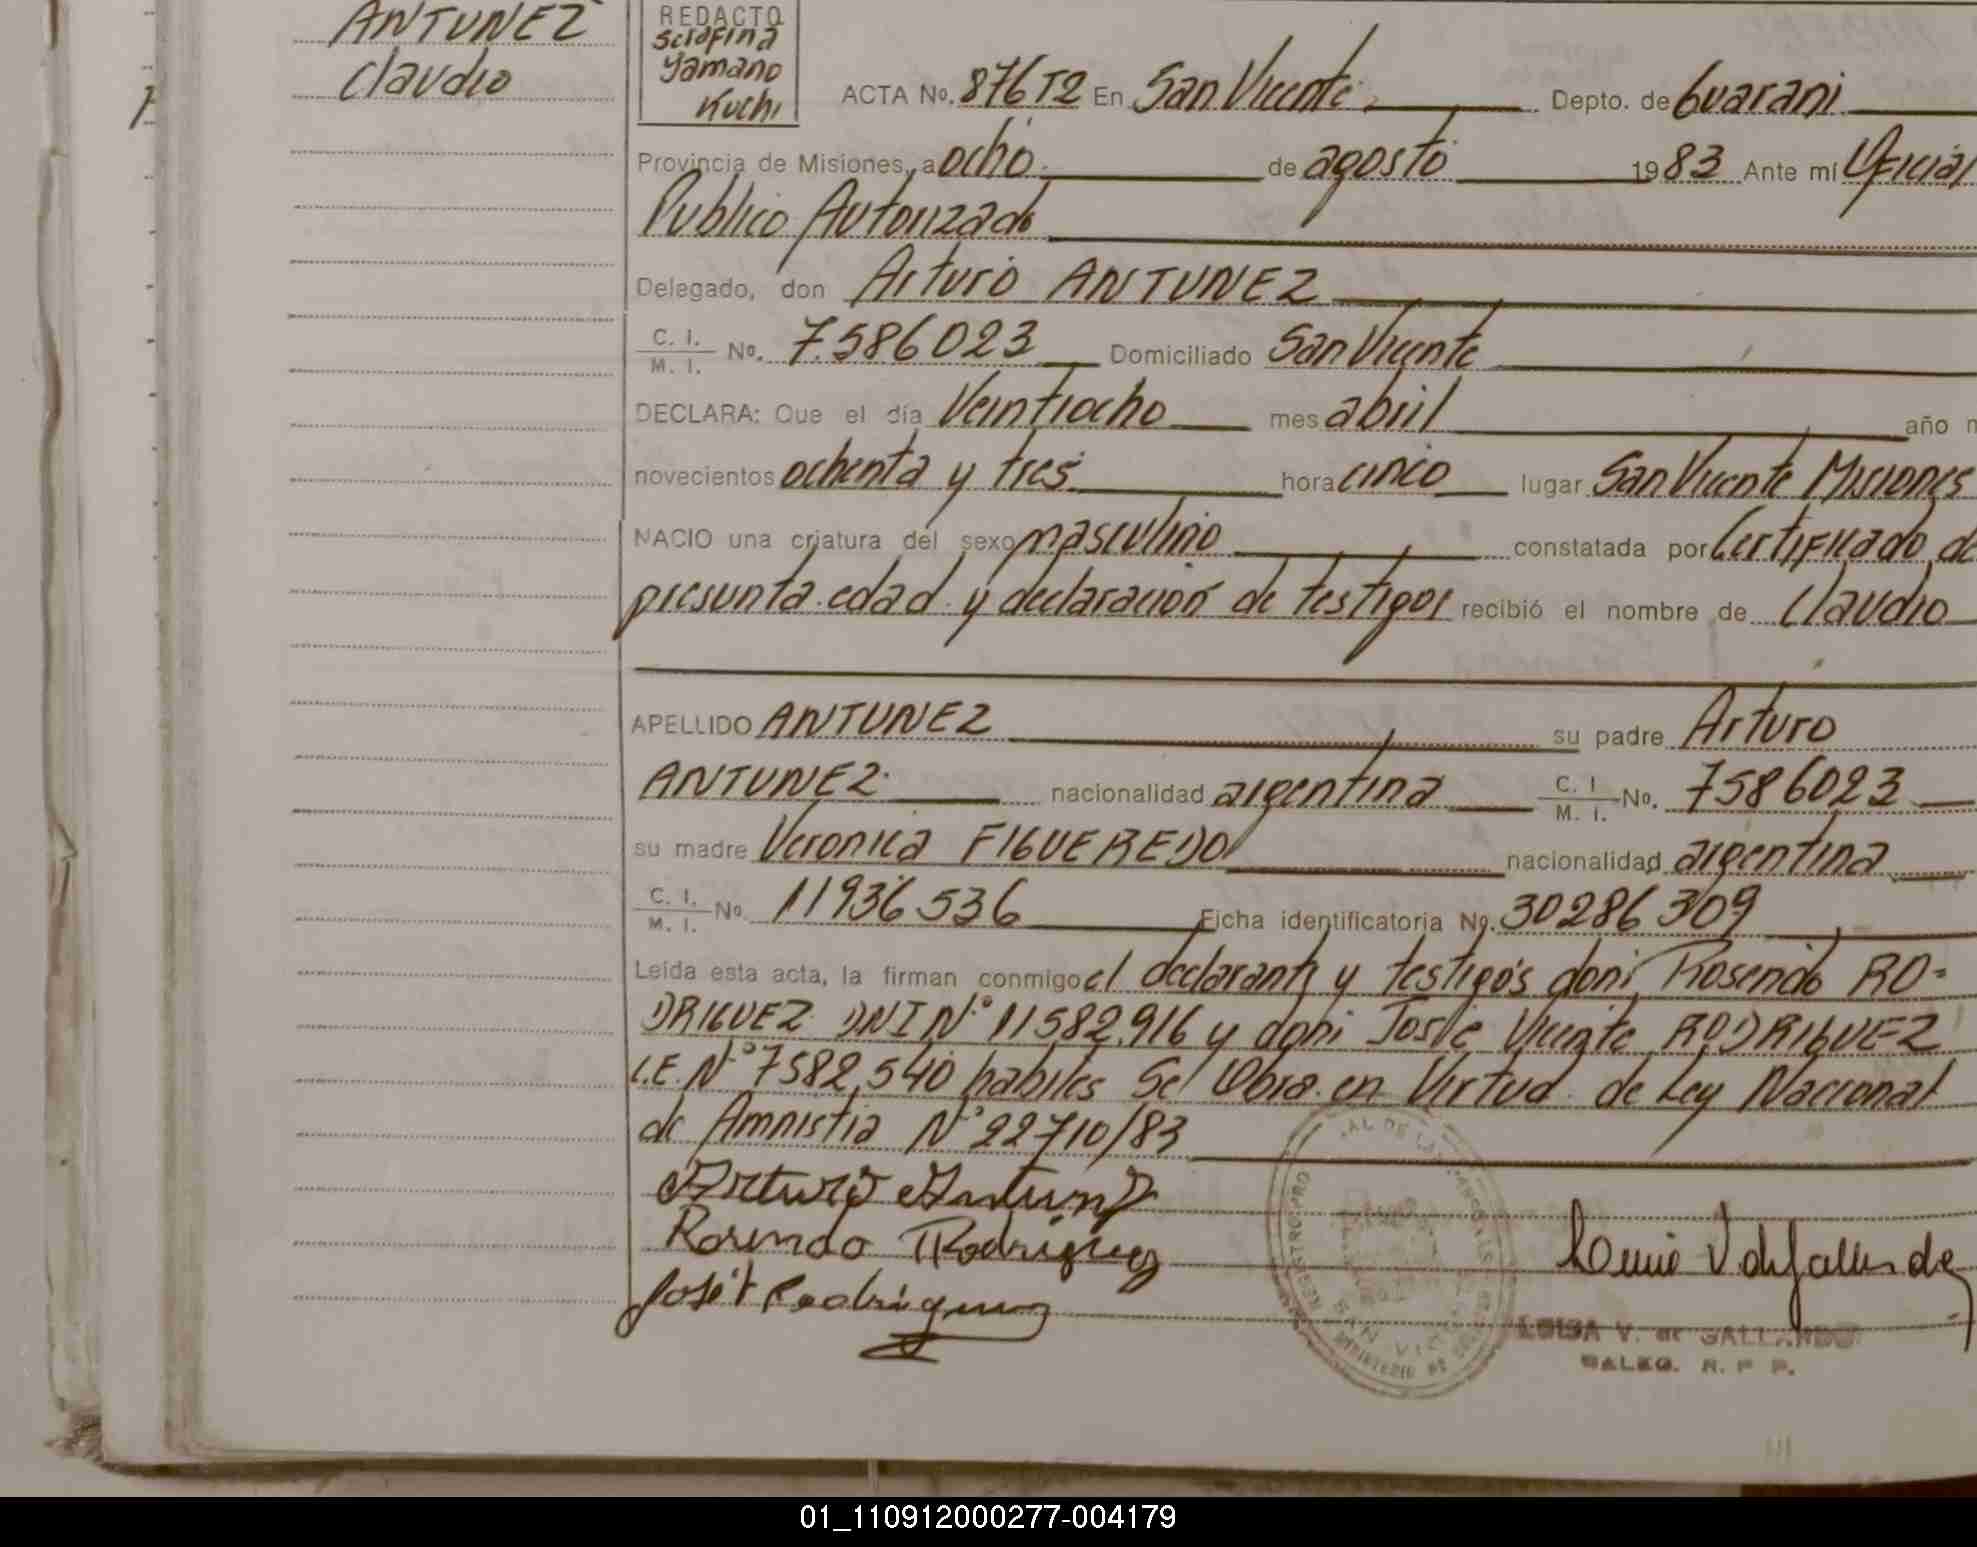 ANTUNEZ
Claudio
REDACTO
Serafina
Yamano
Kuchi
ACTA No. 876 T2 En San Vicente Depto. de Guarani
Provincia de Misiones, a ocho de agosto 1983 Ante mí Oficial
Publico Autorizado
Delegado, don Arturo ANTUNEZ
C. I. M. I. No. 7.586023 Domiciliado San Vicente
DECLARA: Que el día Veintiocho mes abril año
novecientos ochenta y tres hora cinco lugar San Vicente Misiones
NACIO una criatura del sexo masculino constatada por Certificado de
presunta edad y declaración de testigos recibió el nombre de Claudio
APELLIDO ANTUNEZ su padre Arturo
ANTUNEZ nacionalidad argentina C. I. M. I. No. 7586023
su madre Veronica FIGUEREDO nacionalidad argentina
C. I. M. I. No. 11936536 Ficha identificatoria No. 30286309
Leída esta acta, la firman conmigo el declarante y testigos don: Rosendo RO-
DRIGUEZ DNI N° 11582.916 y don: José Vicente RODRIGUEZ
L.E. N° 7582.540 habiles Se Obra en Virtud de Ley Nacional
de Amnistia N° 22710/83
Arturo Antunez
Rosendo Rodriguez
José V Rodriguez
REGISTRO PRO AL DE LAS PERSONAS
SAN VICENTE
MINISTERIO DE
LUISA V. de GALLARDO
R. P. P.
01_110912000277-004179